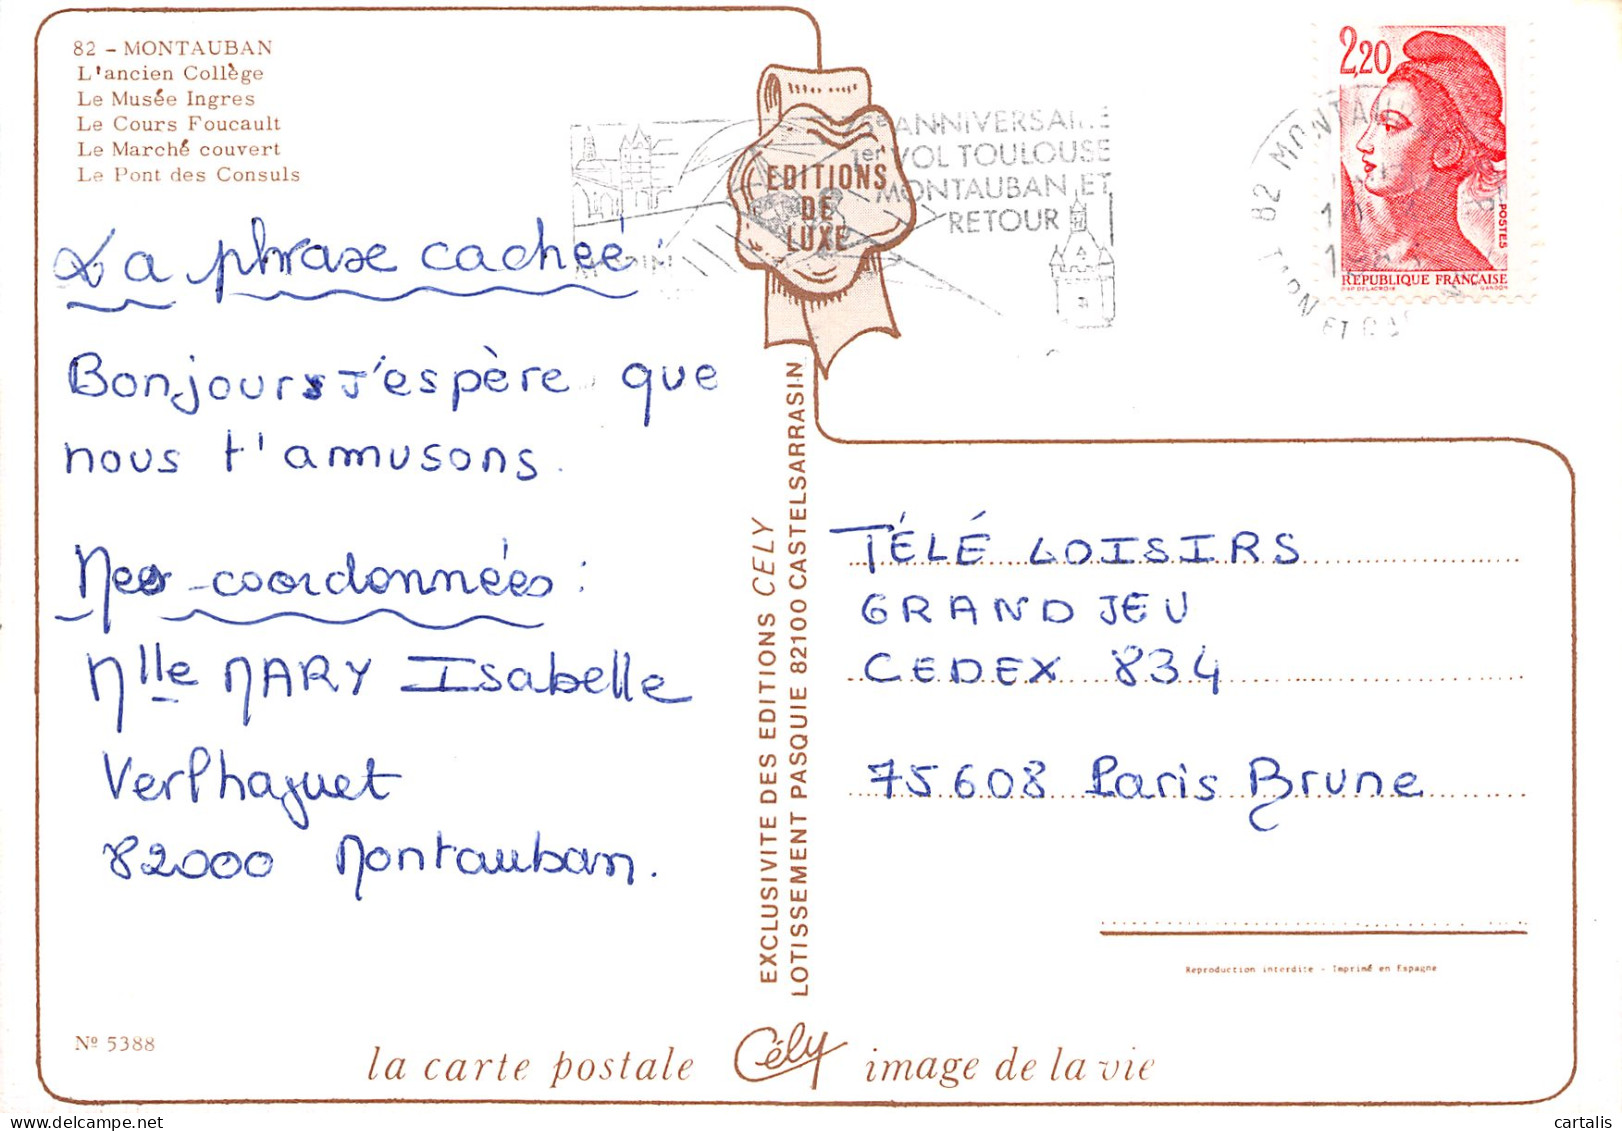 82 - MONTAUBAN
L'ancien Collège
Le Musée Ingres
Le Cours Foucault
Le Marché couvert
Le Pont des Consuls
La phrase cachée :
Bonjour j'espère que
nous t'amusons.
Mes coordonnées :
Mlle MARY Isabelle
Verlhaguet
82000 Montauban.
Nº 5388
EDITIONS
DE
LUXE
ANNIVERSAIRE
1er VOL TOULOUSE
MONTAUBAN ET
RETOUR
82 MONTAU
TARN ET
2,20
POSTES
REPUBLIQUE FRANÇAISE
D'AP. DELACROIX GANDON
EXCLUSIVITE DES EDITIONS CELY
LOTISSEMENT PASQUIE 82100 CASTELSARRASIN
TÉLÉ LOISIRS
GRAND JEU
CEDEX 834
75608 Paris Brune
Reproduction interdite - Imprimé en Espagne
la carte postale Cély image de la vie
cartalis
delcampe.net